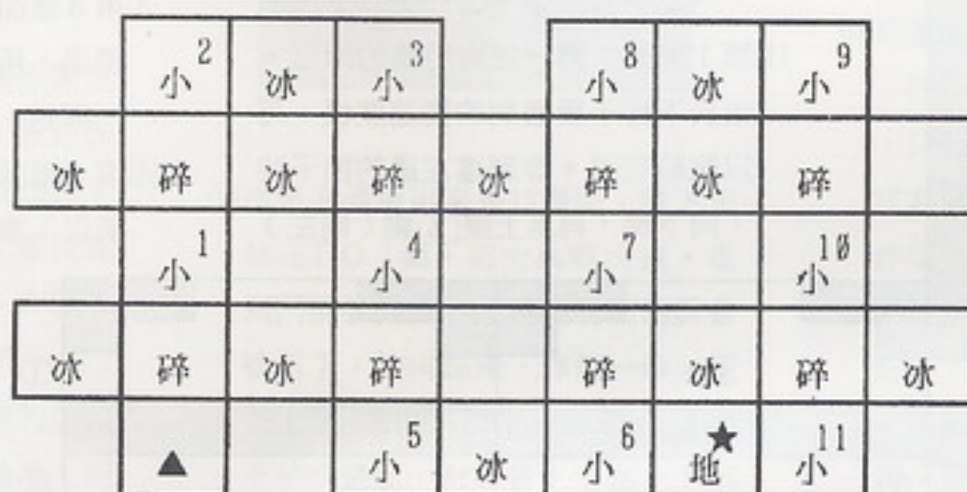 小2 冰 小3 小8 冰 小9
冰 碎 冰 碎 冰 碎 冰 碎
小1 小4 小7 小10
冰 碎 冰 碎 碎 冰 碎 冰
▲ 小5 冰 小6 地★ 小11